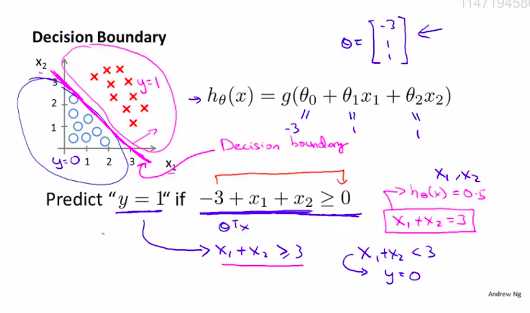 1147194580
Decision Boundary
x₂
3
2
1
1 2 3 x₁
y=1
y=0
θ = [-3 1 1]
→ hθ(x) = g(θ₀ + θ₁x₁ + θ₂x₂)
-3 1 1
Decision boundary
Predict “y = 1“ if −3 + x₁ + x₂ ≥ 0
θᵀx
→ x₁ + x₂ ≥ 3
x₁, x₂
→ hθ(x) = 0.5
x₁ + x₂ = 3
x₁ + x₂ < 3
→ y = 0
Andrew Ng